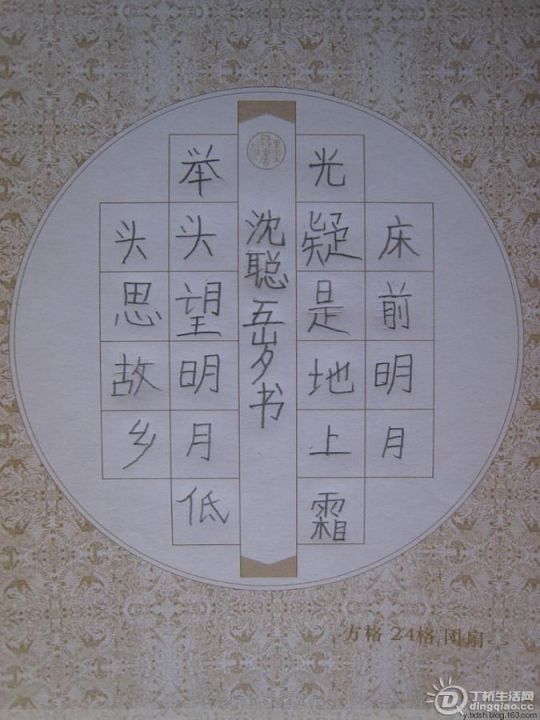 床前明月
光疑是地上霜
沈聪五岁书
举头望明月低
头思故乡
方格 24格 团扇
丁桥生活网
dingqiao.cc
y.tdsh.blog.163.com